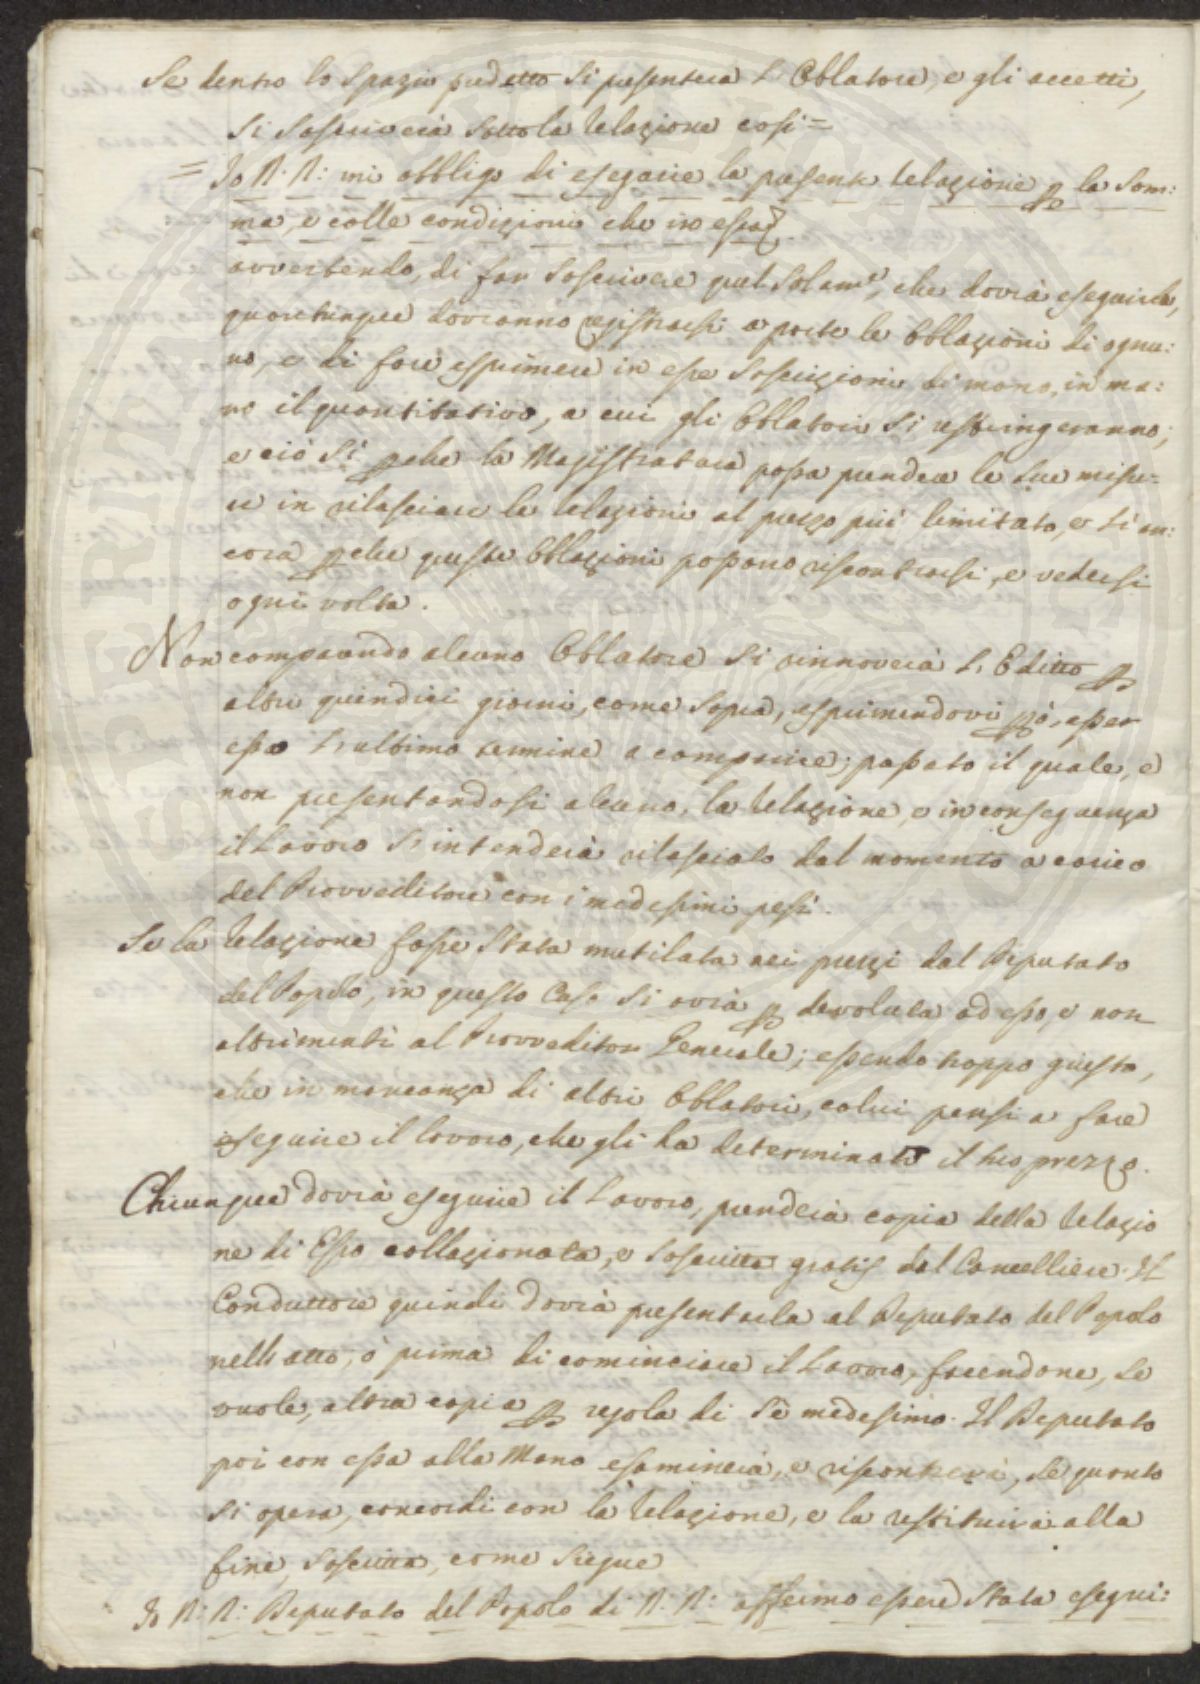 Se dentro lo spazio predetto si presenterà L'Oblatore, e gli accetti,
si soscriverà sotto la Relazione così =
= Io N: N: mi obbligo di eseguire la presente Relazione p la som:
ma, e colle condizioni che in essa.
avvertendo, di far soscrivere quel solam.e, che dovrà eseguirla,
quantunque dovranno registrarsi a parte le Oblazioni di ognu:
no, e di fare esprimere in esse soscrizioni di mano, in ma:
no il quantitativo, a cui gli Oblatori si restringeranno;
e ciò sì pche la Magistratura possa prendere le sue misu=
re in rilasciare le Relazioni al prezzo più limitato, e sì an:
cora pche queste Oblazioni possano riscontrarsi, e vedersi
ogni volta.
Non comparendo alcuno Oblatore si rinnoverà L'Editto p
altri quindici giorni, come sopra, esprimendovi pò, esser
esso L'ultimo termine a comparire; passato il quale, e
non presentandosi alcuno, la Relazione, e in conseguenza
il Lavoro s'intenderà rilasciato dal momento a carico
del Provveditore con i medesimi pesi.
Se la Relazione fosse stata mutilata nei prezzi dal Deputato
del Popolo, in questo caso si avrà p devoluta ad esso, e non
altrimenti al Provveditor Generale; essendo troppo giusto,
che in mancanza di altri Oblatori, colui pensi a fare
eseguire il lavoro, che gli ha determinato il suo prezzo.
Chiunque dovrà eseguire il Lavoro, prenderà copia della Relazio
ne di Esso collazionata, e soscritta gratis dal Cancelliere. Il
Conduttore quindi dovrà presentarla al Deputato del Popolo
nell'atto, ò prima di cominciare il Lavoro, facendone, se
vuole, altra copia p regola di sè medesimo. Il Deputato
poi con essa alla mano esaminerà, e riscontrerà, se quanto
si opera, concordi con la Relazione, e la restituirà alla
fine, soscritta, come siegue
Io N: N: Deputato del Popolo di N: N: affermo essere stata esegui: